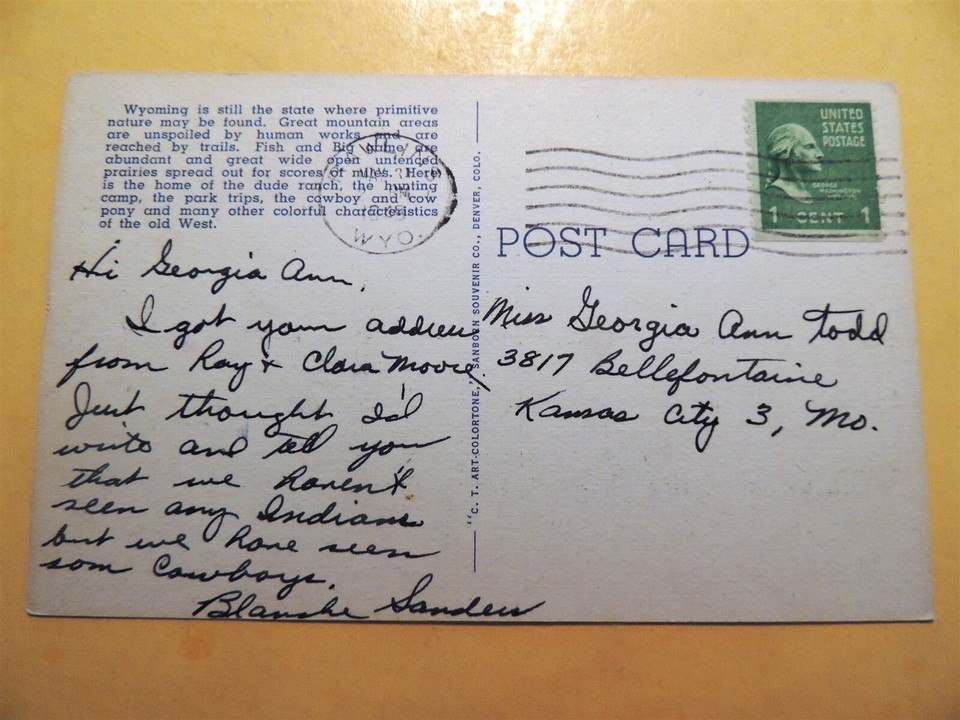 Wyoming is still the state where primitive
nature may be found. Great mountain areas
are unspoiled by human works and are
reached by trails. Fish and Big game are
abundant and great wide open unfenced
prairies spread out for scores of miles. Here
is the home of the dude ranch, the hunting
camp, the park trips, the cowboy and cow
pony and many other colorful characteristics
of the old West.
WYO.
Hi Georgia Ann,
I got your address
from Ray & Clara Moore,
Just thought I'd
write and tell you
that we haven't
seen any Indians
but we have seen
som Cowboys.
Blanche Sanders
"C. T. ART-COLORTONE," SANBORN SOUVENIR CO., DENVER, COLO.
UNITED
STATES
POSTAGE
GEORGE
WASHINGTON
1 CENT 1
POST CARD
Miss Georgia Ann Todd
3817 Bellefontaine
Kansas City 3, Mo.